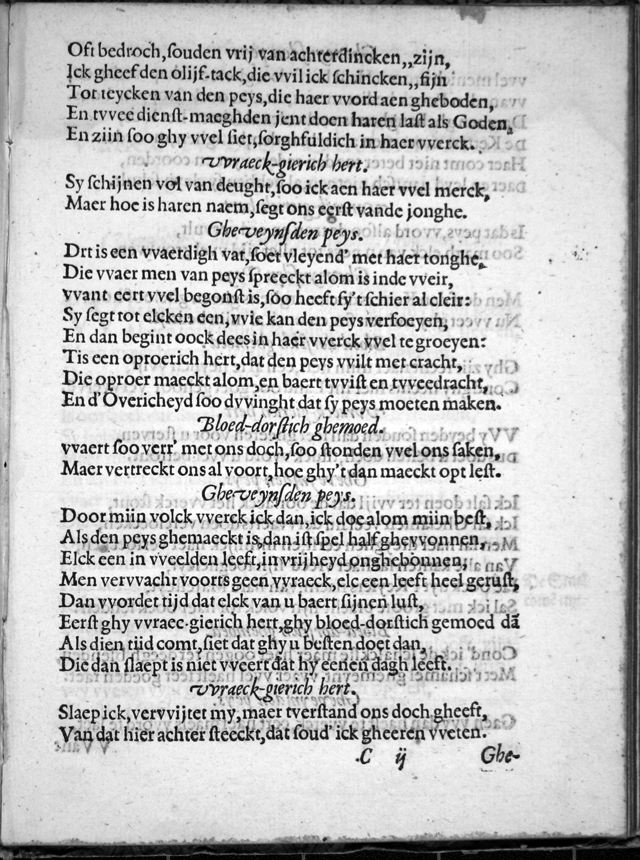 Oft bedroch, souden vrij van achterdincken,, zijn,
Ick gheef den olijf-tack, die vvil ick schincken,, fijn
Tot teycken van den peys, die haer vvord aen gheboden,
En tvvee dienst-maeghden jent doen haren last als Goden,
En zijn soo ghy vvel siet, sorghfuldich in haer vverck.
Vvraeck-gierich hert.
Sy schijnen vol van deught, soo ick aen haer vvel merck,
Maer hoe is haren naem, segt ons eerst vande jonghe.
Gheveynsden peys.
Drt is een vvaerdigh vat, soet vleyend' met haer tonghe,
Die vvaer men van peys spreeckt alom is inde vveir,
vvant eert vvel begonst is, soo heeft sy't schier al cleir:
Sy segt tot elcken een, vvie kan den peys verfoeyen,
En dan begint oock dees in haer vverck vvel te groeyen:
Tis een oproerich hert, dat den peys vvilt met cracht,
Die oproer maeckt alom, en baert tvvist en tvveedracht,
En d'Overicheyd soo dvvinght dat sy peys moeten maken.
Bloed-dorstich ghemoed.
vvaert soo verr' met ons doch, soo stonden vvel ons saken,
Maer vertreckt ons al voort, hoe ghy't dan maeckt opt lest.
Gheveynsden peys.
Door mijn volck vverck ick dan, ick doe alom mijn best,
Als den peys ghemaeckt is, dan ist spel half ghevvonnen,
Elck een in vveelden leeft, in vrijheyd onghebonnen,
Men vervvacht voorts geen vvraeck, elc een leeft heel gerust,
Dan vvordet tijd dat elck van u baert sijnen lust,
Eerst ghy vvraec-gierich hert, ghy bloed-dorstich gemoed dā
Als dien tijd comt, siet dat ghy u besten doet dan,
Die dan slaept is niet vveert dat hy eenen dagh leeft.
Vvraeck-gierich hert.
Slaep ick, vervvijtet my, maer tverstand ons doch gheeft,
Van dat hier achter steeckt, dat soud' ick gheeren vveten.
C ij Ghe-